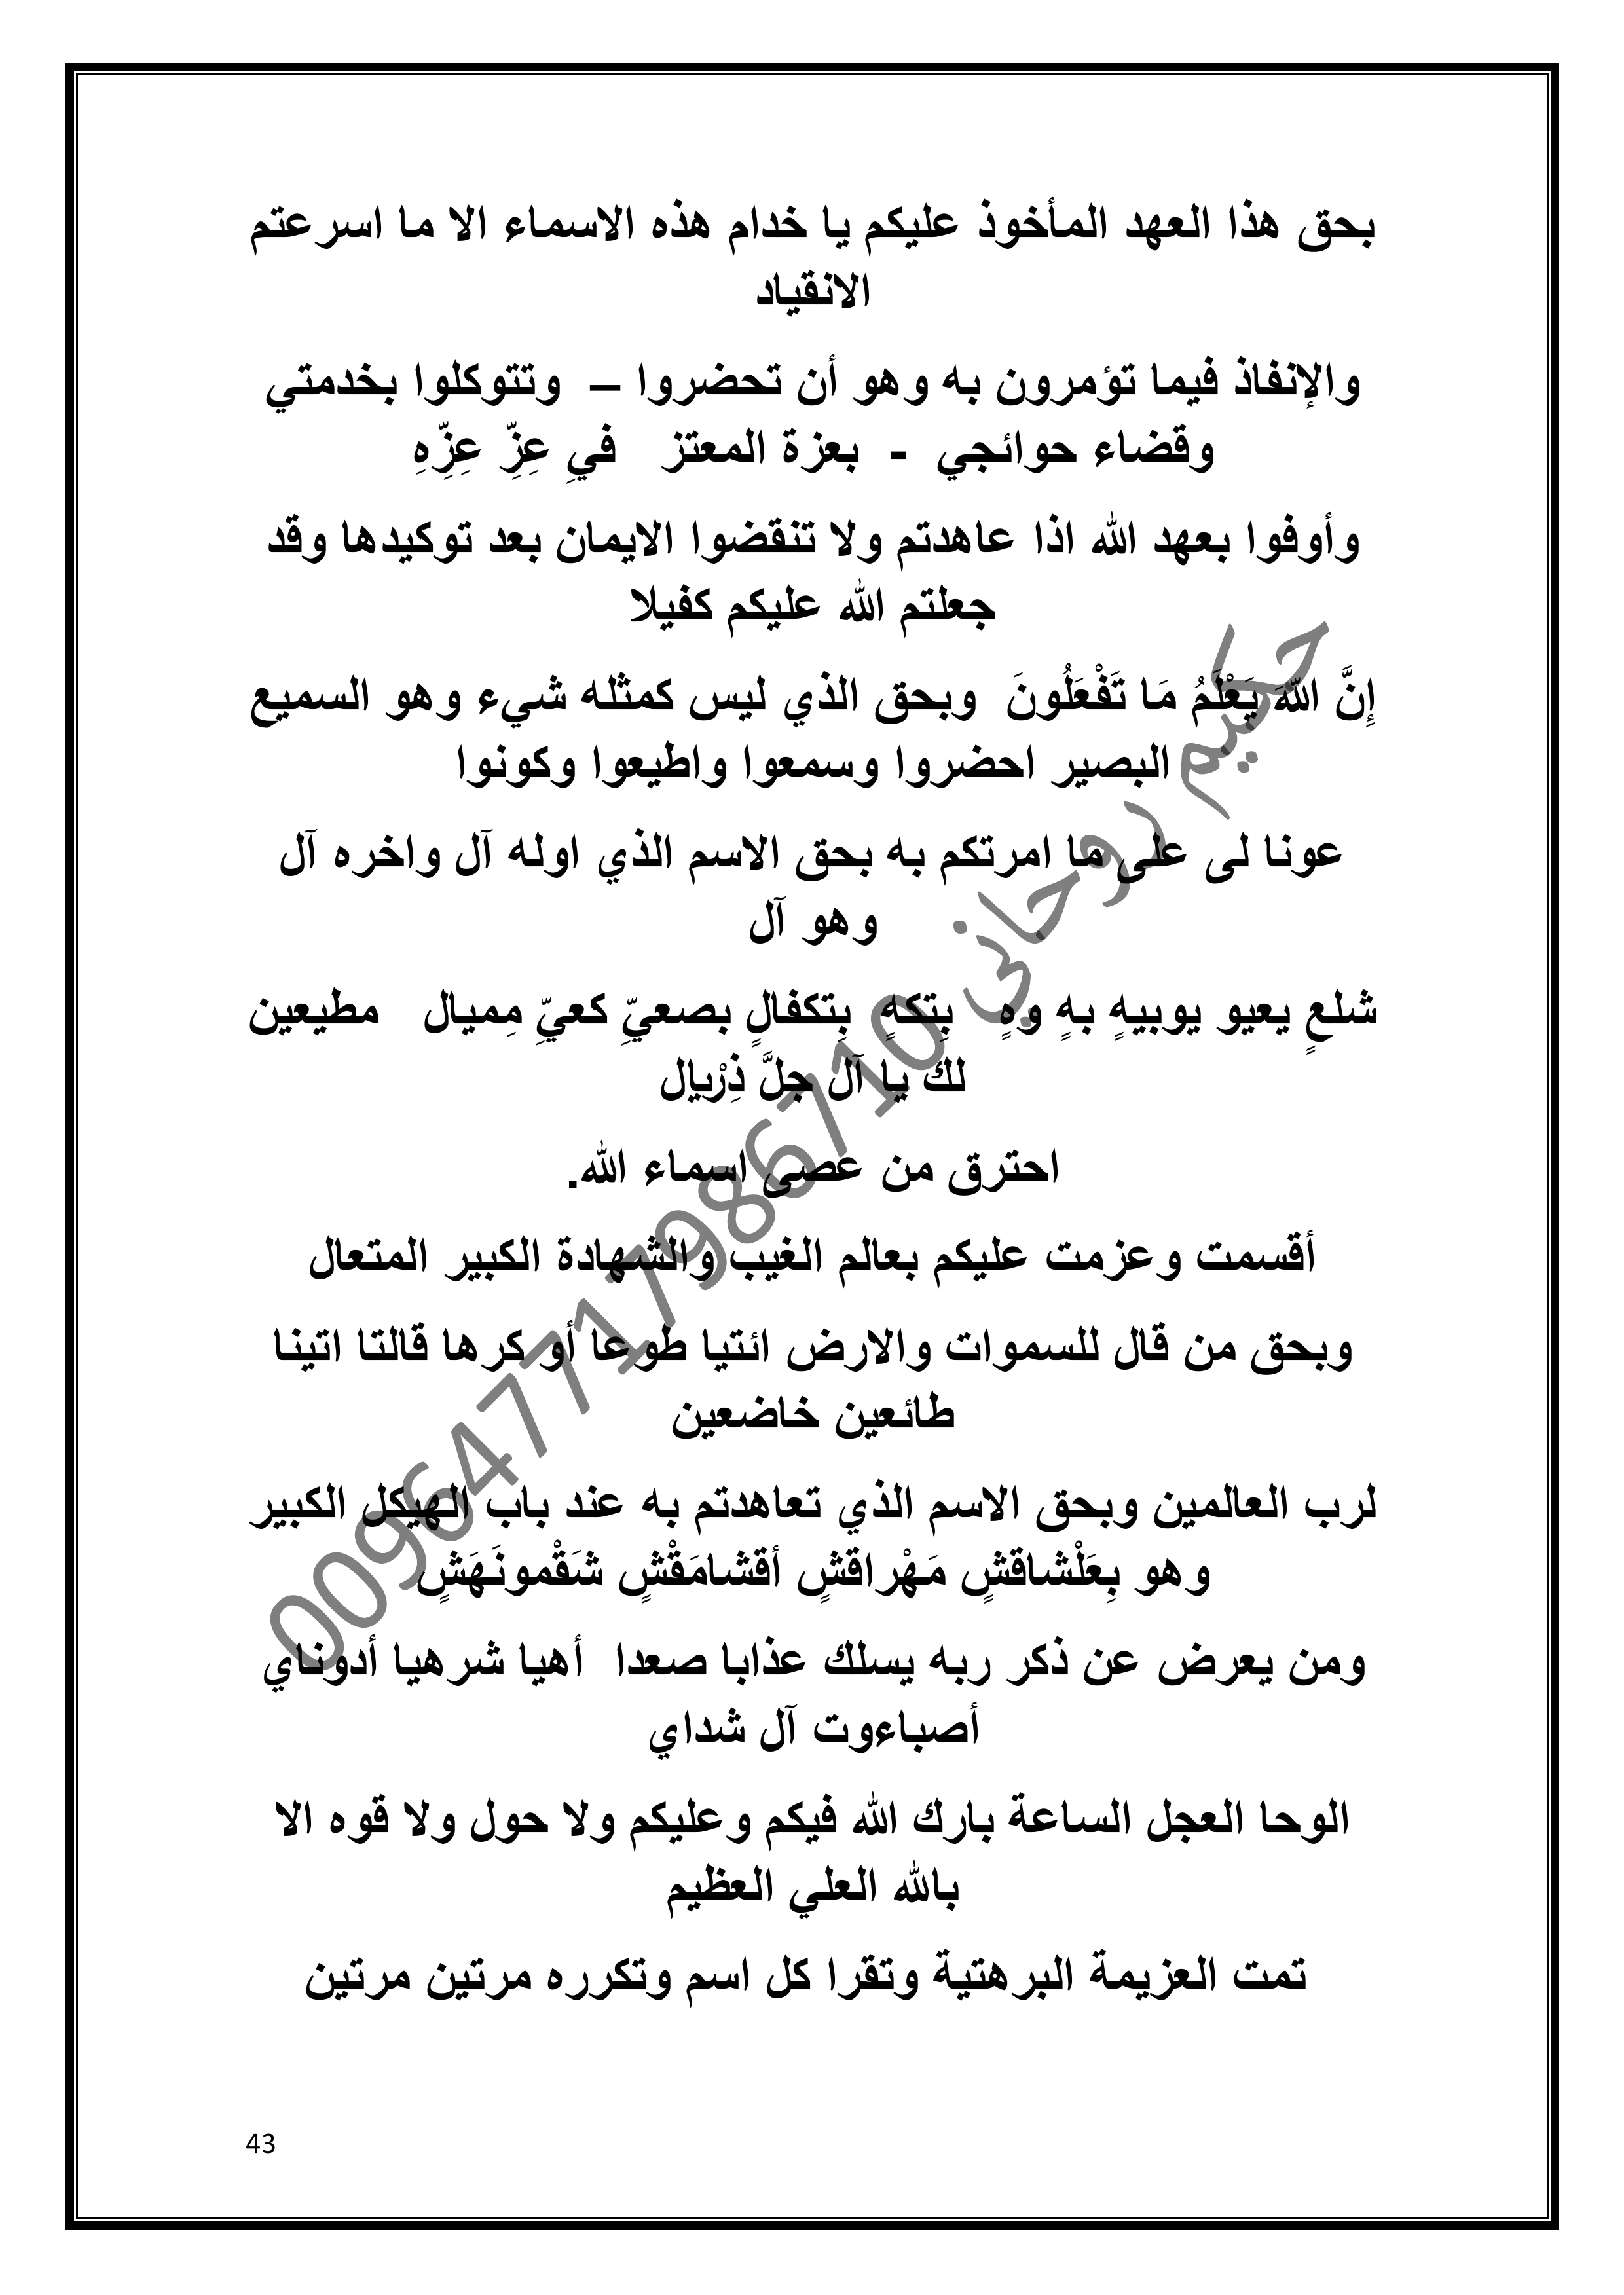 بحق هذا العهد المأخوذ عليكم يا خدام هذه الاسماء الا ما اسرعتم
الانقياد
والإنفاذ فيما تؤمرون به وهو أن تحضروا – وتتوكلوا بخدمتي
وقضاء حوائجي - بعزة المعتز فيِ عِزِّ عِزِّهِ
وأوفوا بعهد الله اذا عاهدتم ولا تنقضوا الايمان بعد توكيدها وقد
جعلتم الله عليكم كفيلا
إِنَّ اللَّهَ يَعْلَمُ مَا تَفْعَلُونَ وبحق الذي ليس كمثله شيء وهو السميع
البصير احضروا وسمعوا واطيعوا وكونوا
عونا لى على ما امرتكم به بحق الاسم الذي اوله آل واخره آل
وهو آل
شلعٍ يعيو يوبيهٍ بهٍ وهٍ بِتكهٍ بِتكفالٍ بصعيِّ كعيِّ مِميال مطيعين
لك يا آل جلَّ ذِرْيإل
احترق من عصى اسماء الله.
أقسمت وعزمت عليكم بعالم الغيب والشهادة الكبير المتعال
وبحق من قال للسموات والارض ائتيا طوعا أو كرها قالتا اتينا
طائعين خاضعين
لرب العالمين وبحق الاسم الذي تعاهدتم به عند باب الهيكل الكبير
وهو بِعَلْشاقشٍ مَهْراقشٍ أقشامَقْشٍ شَقْمونَهَشٍ
ومن يعرض عن ذكر ربه يسلك عذابا صعدا أهيا شرهيا أدوناي
أصباءوت آل شداي
الوحا العجل الساعة بارك الله فيكم وعليكم ولا حول ولا قوه الا
بالله العلي العظيم
تمت العزيمة البرهتية وتقرا كل اسم وتكرره مرتين مرتين
حكيم روحاني 009647717986710
43